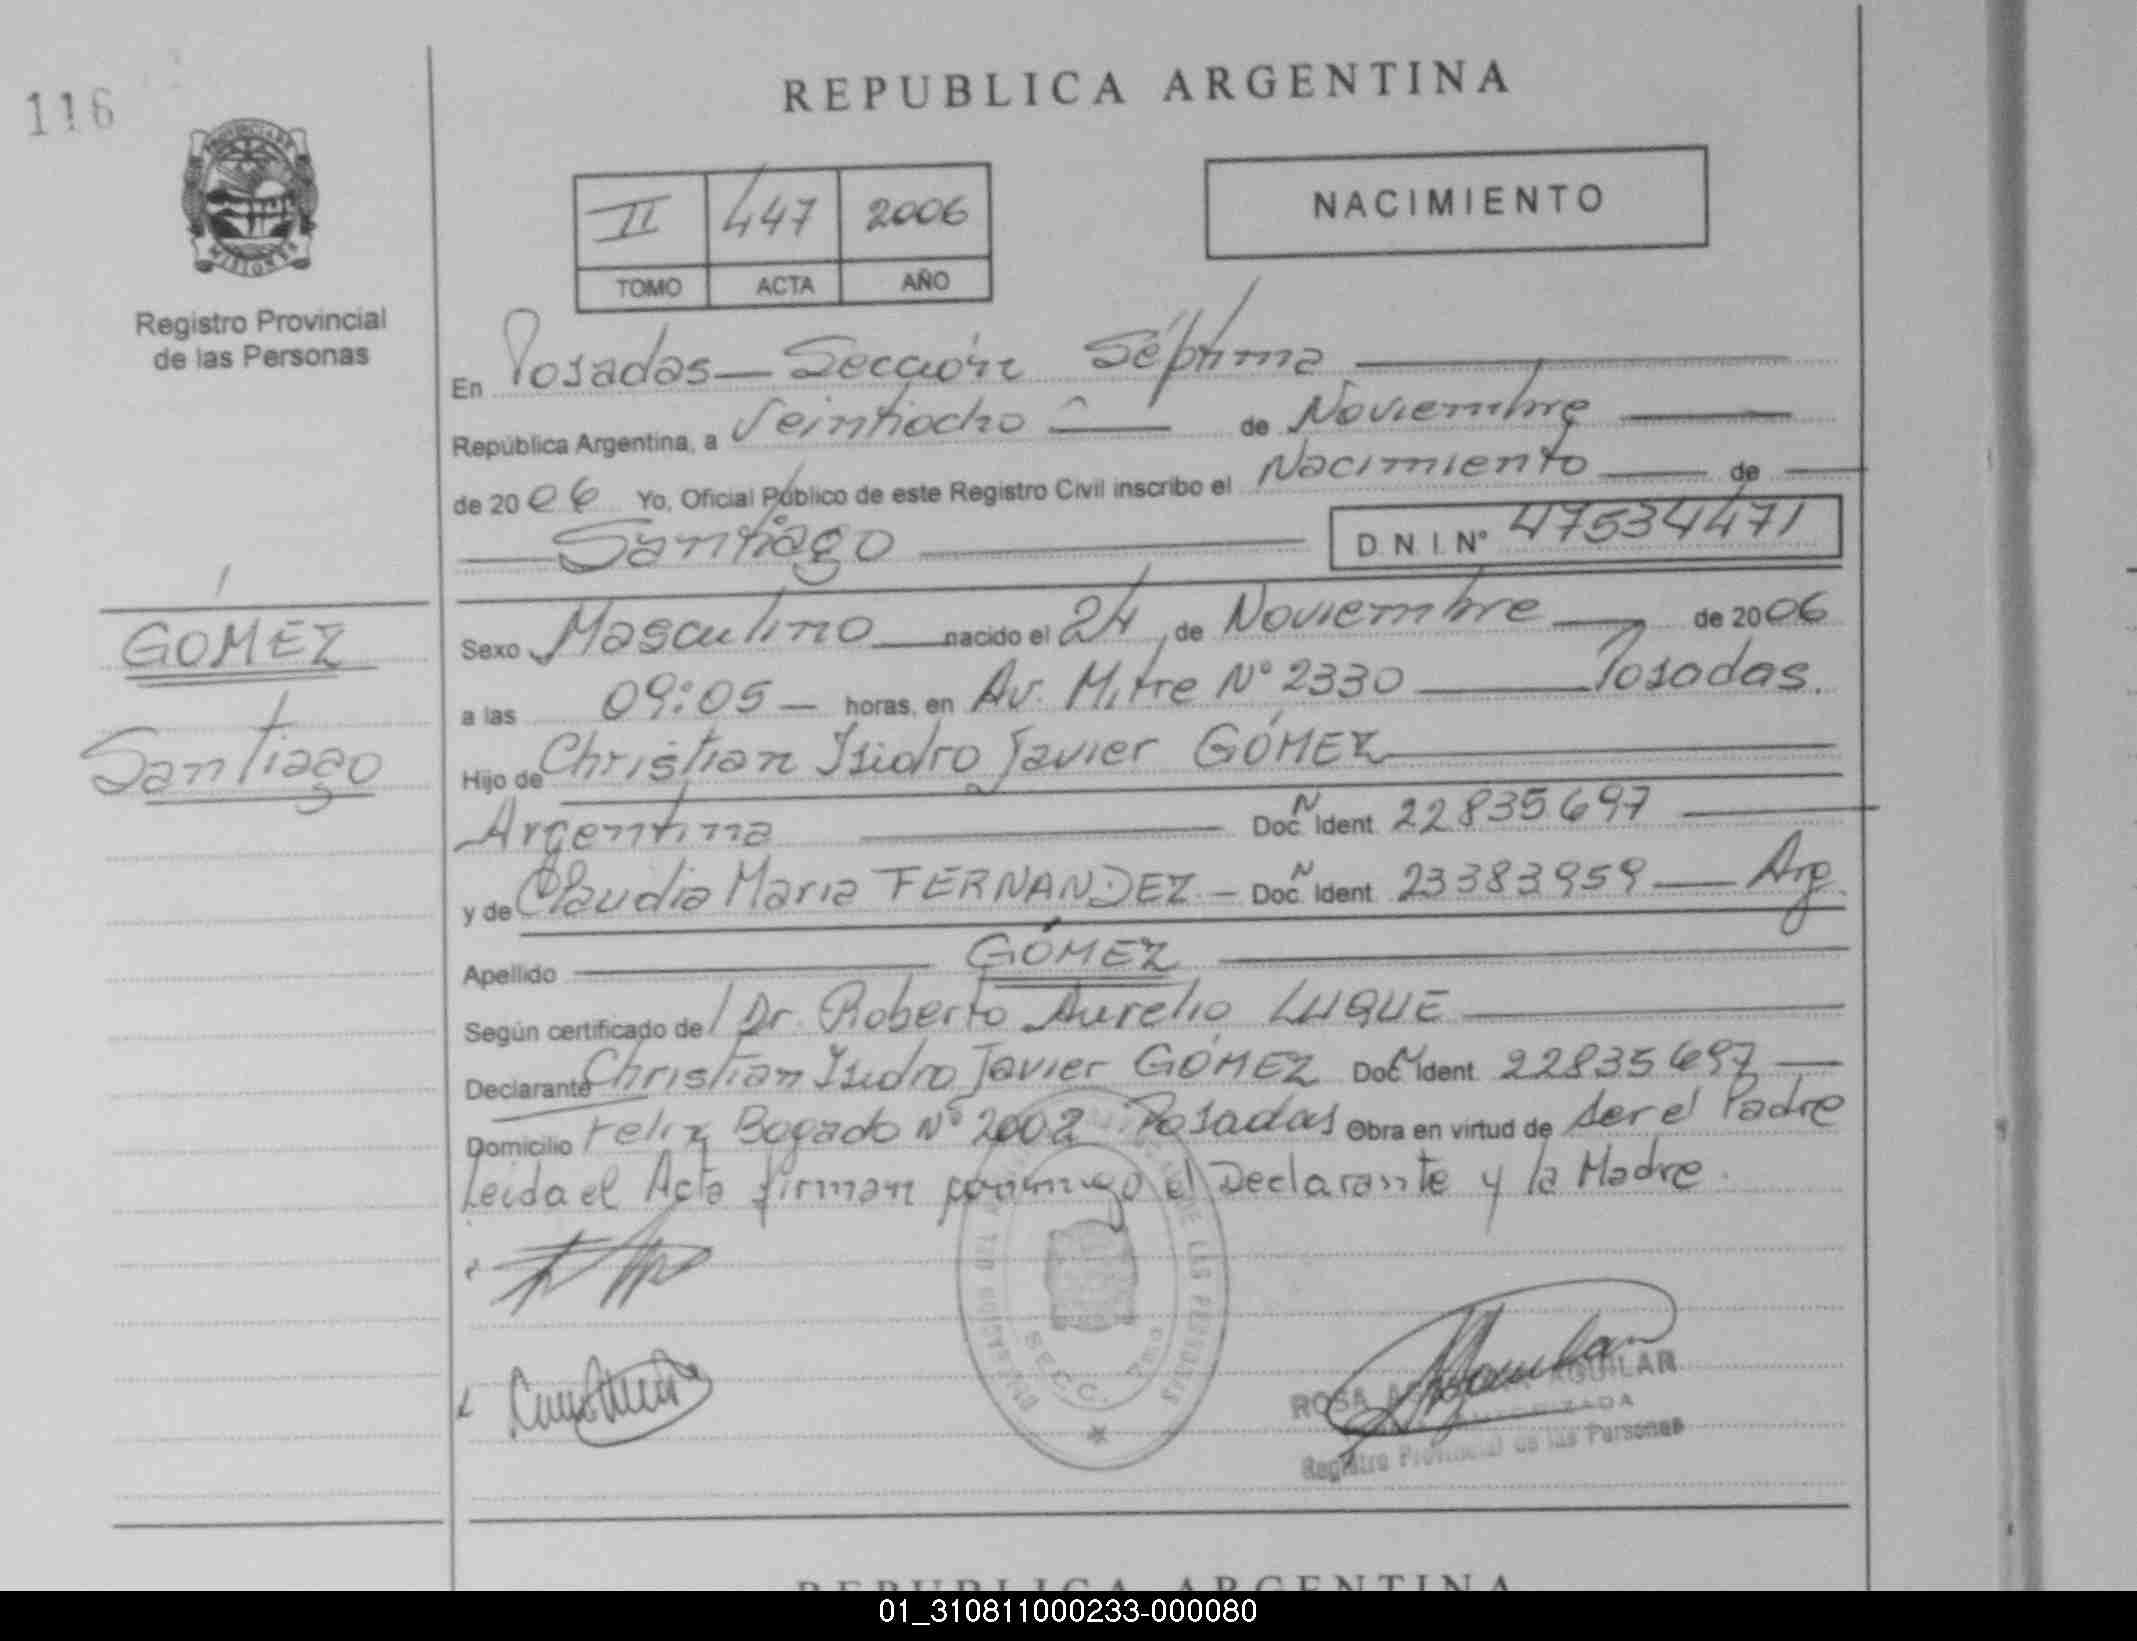 116
REPUBLICA ARGENTINA
II 447 2006
TOMO ACTA AÑO
NACIMIENTO
PROVINCIA DE
MISIONES
Registro Provincial
de las Personas
En Posadas — Sección Séptima
República Argentina, a Veintiocho — de Noviembre
de 2006 Yo, Oficial Público de este Registro Civil inscribo el Nacimiento — de —
Santiago
D.N.I. Nº 47534471
GOMEZ
Santiago
Sexo Masculino nacido el 24, de Noviembre — de 2006
a las 09:05 — horas, en Av. Mitre Nº 2330 — Posadas.
Hijo de Christian Isidro Javier GÓMEZ
Argentina — Doc. N Ident. 22835697
y de Claudia Maria FERNANDEZ — Doc. N Ident. 23383959 — Arg
Apellido GÓMEZ
Según certificado de Dr. Roberto Aurelio LUQUE
Declarante Christian Isidro Javier GÓMEZ Doc. N Ident. 22835697 —
Domicilio Felix Bogado Nº 2002 Posadas Obra en virtud de ser el Padre
Leida el Acta firman conmigo el Declarante y la Madre.
DE LAS PERSONAS
SECC. 7ma
ROSA AGUILAR
AUTORIZADA
Registro Provincial de las Personas
REPUBLICA ARGENTINA
01_310811000233-000080